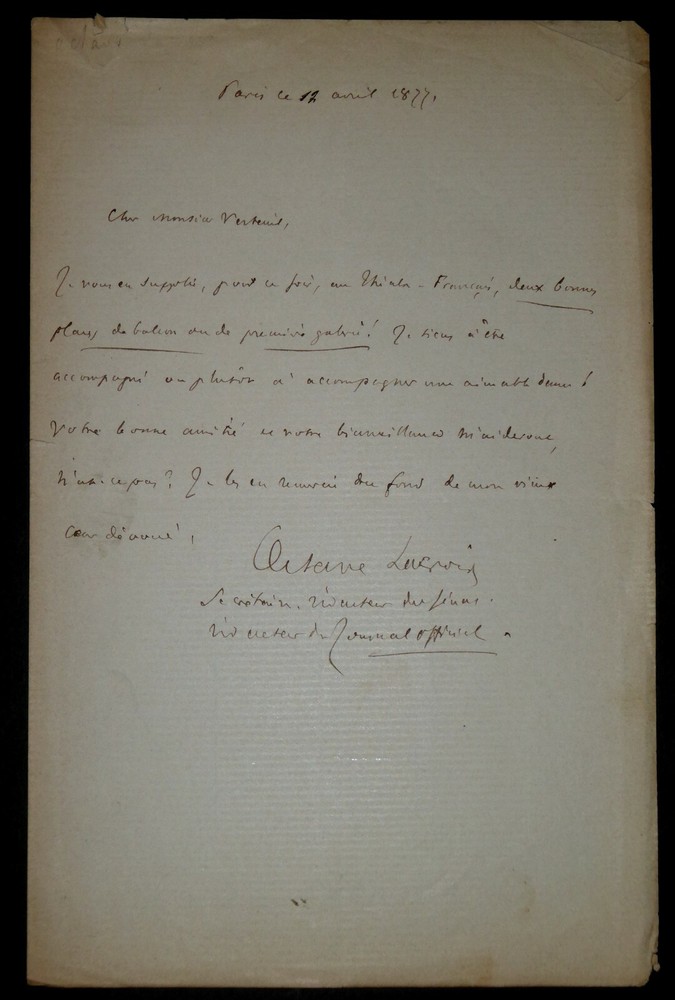 Paris ce 12 avril 1877.
Cher Monsieur Verteuil,
Je vous en supplie, pour ce soir, au Théatre-Français, deux bonnes
places de balcon ou de première galerie! Je tiens à être
accompagné ou plutôt à accompagner une aimable dame!
Votre bonne amitié et votre bienveillance m'aideront,
n'est-ce pas? Je les en remercie du fond de mon vieux
cœur dévoué,
Octave Lacroix
Secrétaire-rédacteur du Sénat.
rédacteur du Journal officiel.